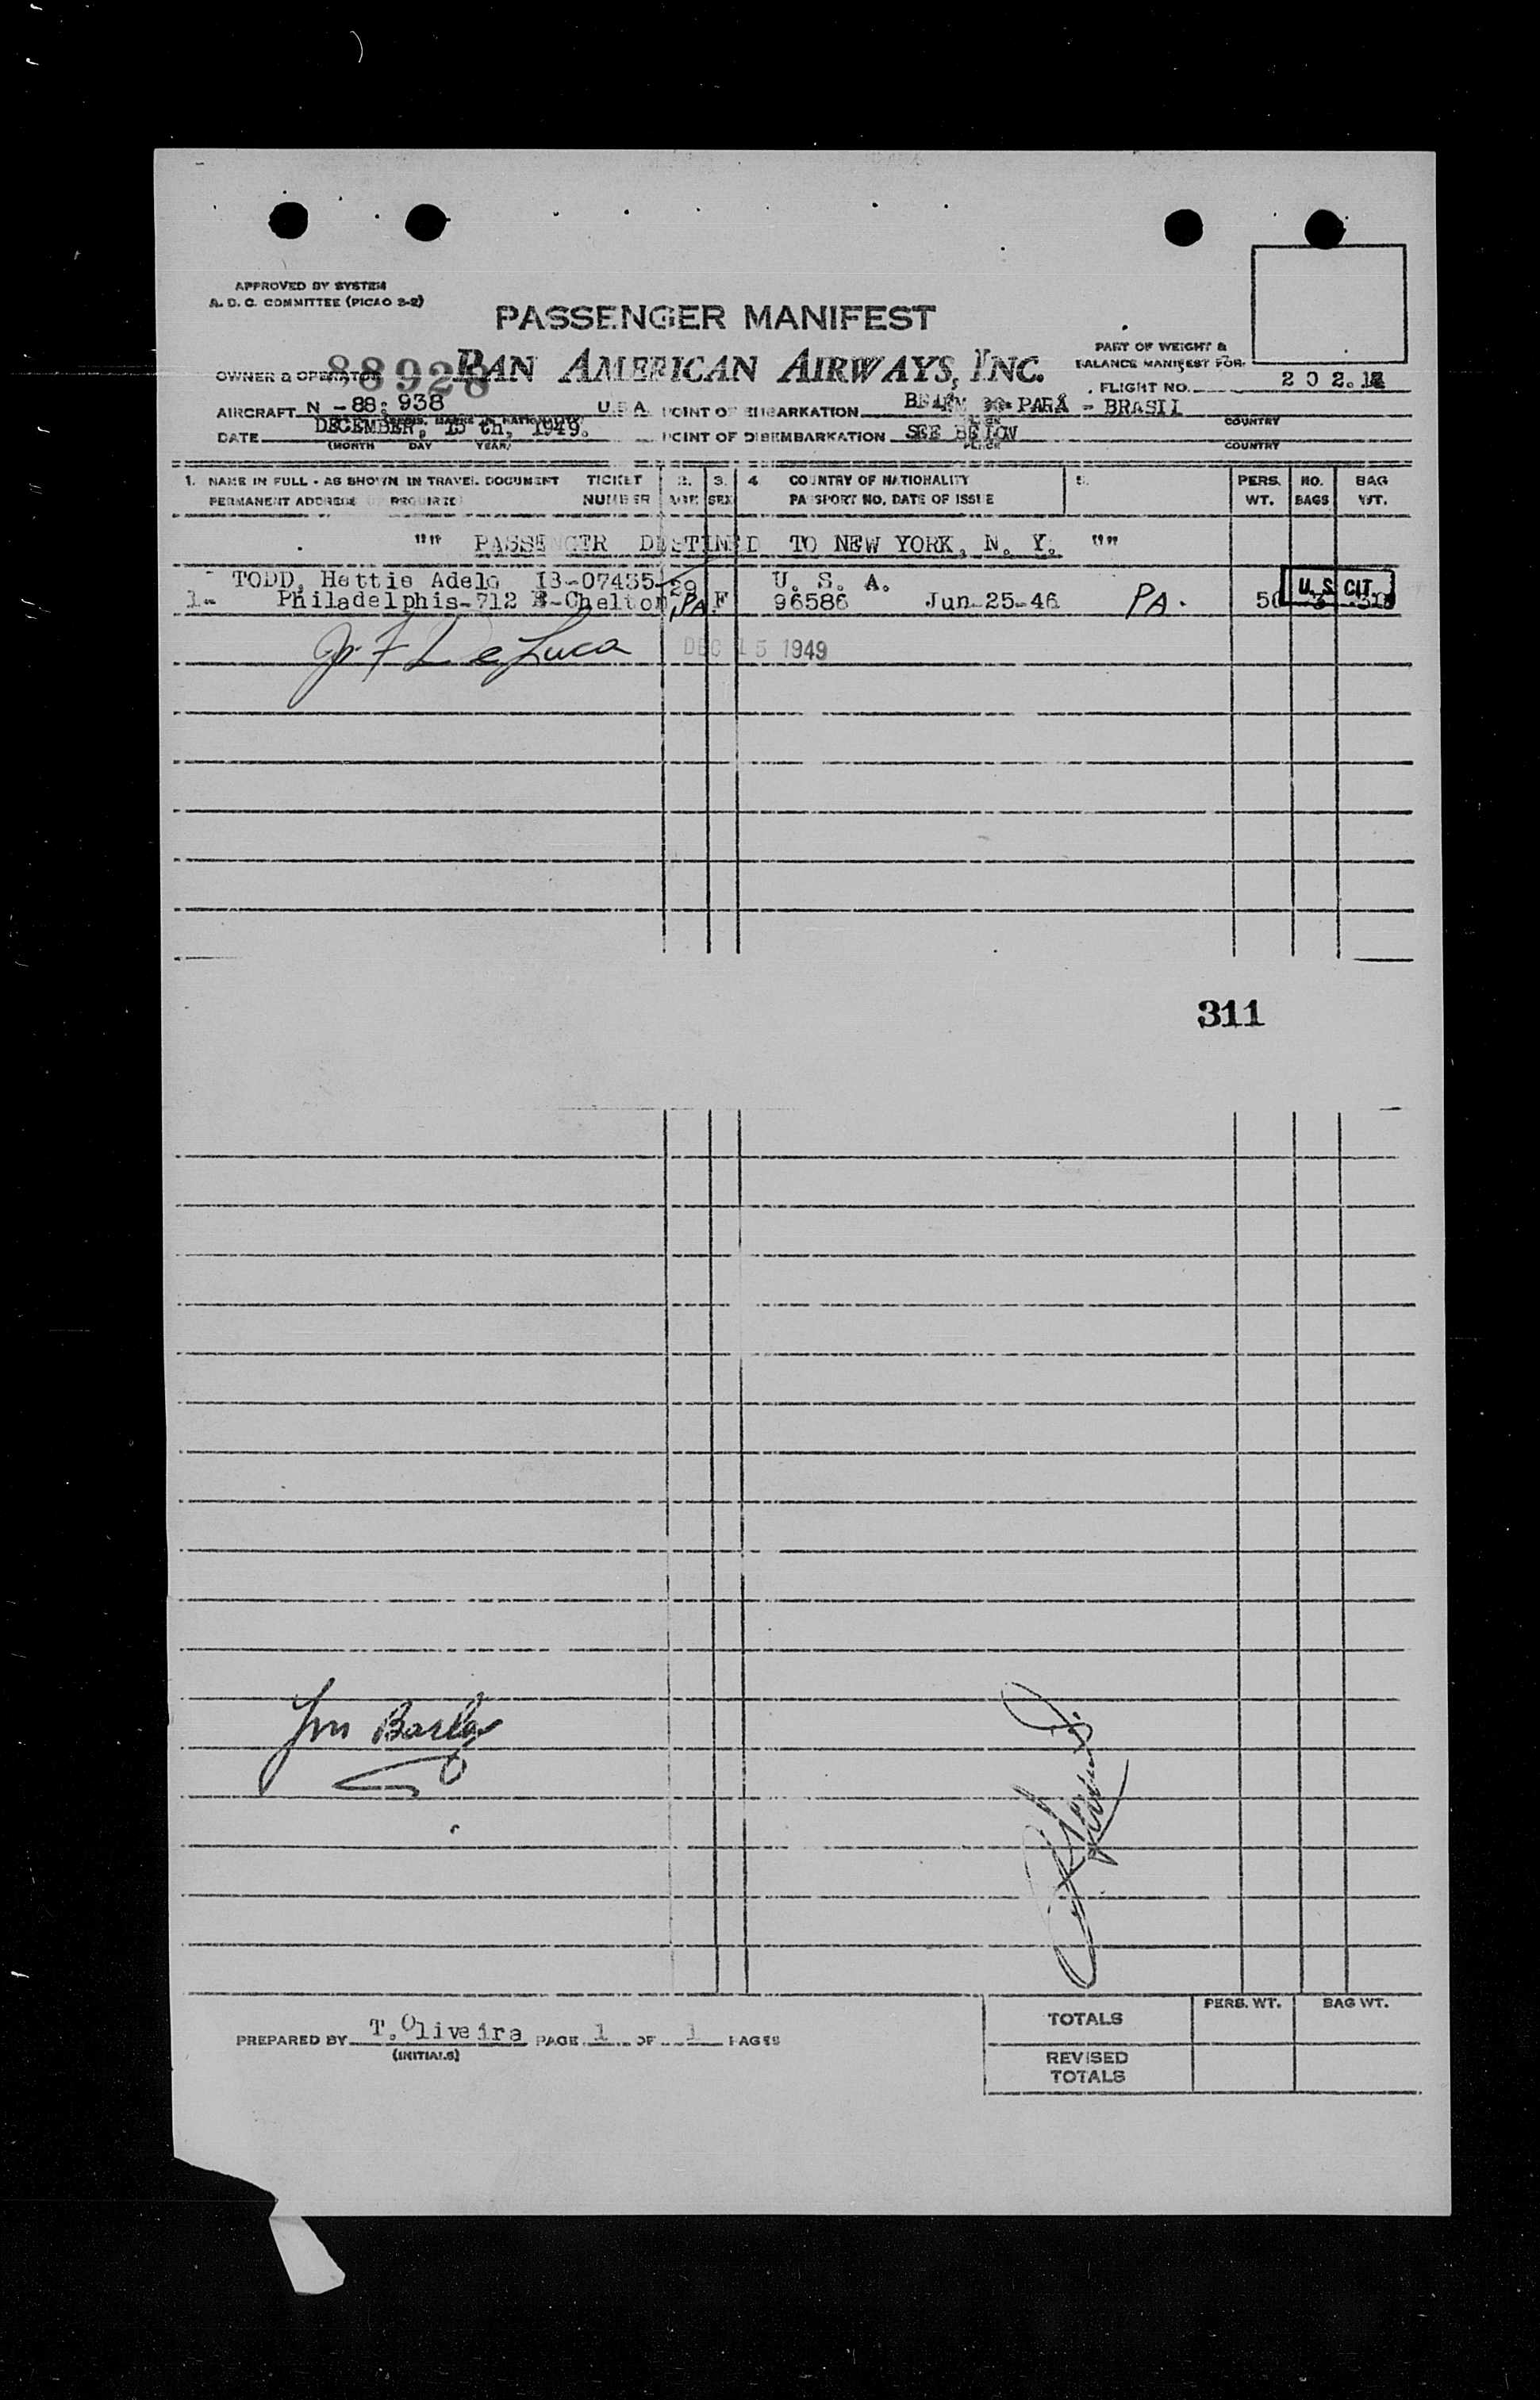 APPROVED BY SYSTEM
A. D. C. COMMITTEE (PICAO 2-2)
PASSENGER MANIFEST
88928
OWNER & OPERATOR PAN AMERICAN AIRWAYS, INC.
PART OF WEIGHT &
BALANCE MANIFEST FOR
FLIGHT NO. 202.
AIRCRAFT N -88: 938 U.S.A. POINT OF EMBARKATION BELEM PARÁ - BRASIL
COUNTRY
DATE DECEMBER, 15 th, 1949. POINT OF DISEMBARKATION SEE BELOW
(MONTH DAY YEAR) PLACE COUNTRY
1. NAME IN FULL - AS SHOWN IN TRAVEL DOCUMENT TICKET 2. 3. 4 COUNTRY OF NATIONALITY 5. PERS. NO. BAG
PERMANENT ADDRESS REQUIRED NUMBER AGE SEX PASSPORT NO. DATE OF ISSUE WT. BAGS WT.
"" PASSENGER DESTINED TO NEW YORK, N. Y. ""
TODD, Hettie Adele IB-07435 29 U. S. A. U.S. CIT.
1- Philadelphis-712 E-Chelton, PA. F 96586 Jun-25-46 PA.
J. F. DeLuca DEC 15 1949
311
PREPARED BY T. Oliveira PAGE 1 OF 1 PAGES
(INITIALS)
PERS. WT. BAG WT.
TOTALS
REVISED
TOTALS